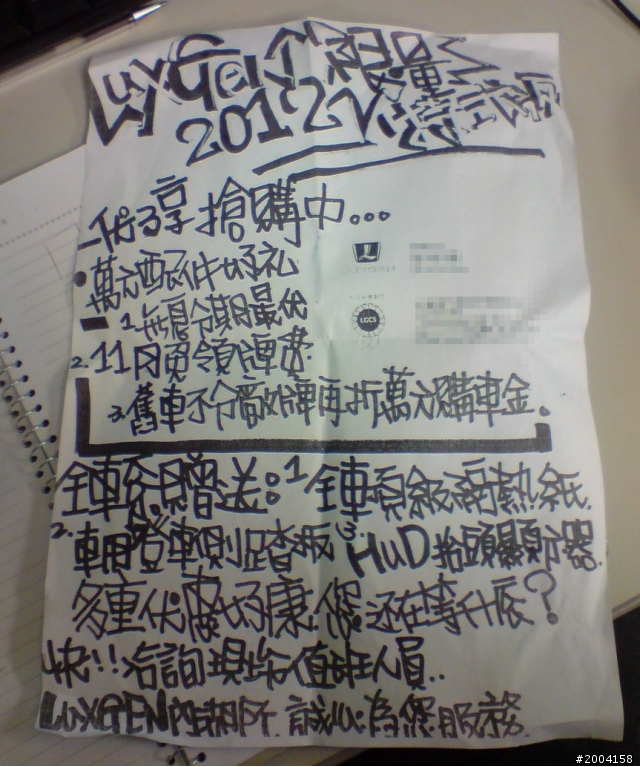 LuxGen
2012
享 搶購中...
萬元配件好禮
1. 分期最優
2. 11 領牌費
3. 舊車不分廠牌再折萬元購車金.
全車系贈送: 1. 全車頂級隔熱紙.
2. 車用登車側踏板 3. HUD 抬頭顯示器.
多重優惠好康,您還在等什麼?
快!! 洽詢現場值班人員..
LUXGEN 內湖所 誠心為您服務.
LGCS
#2004158